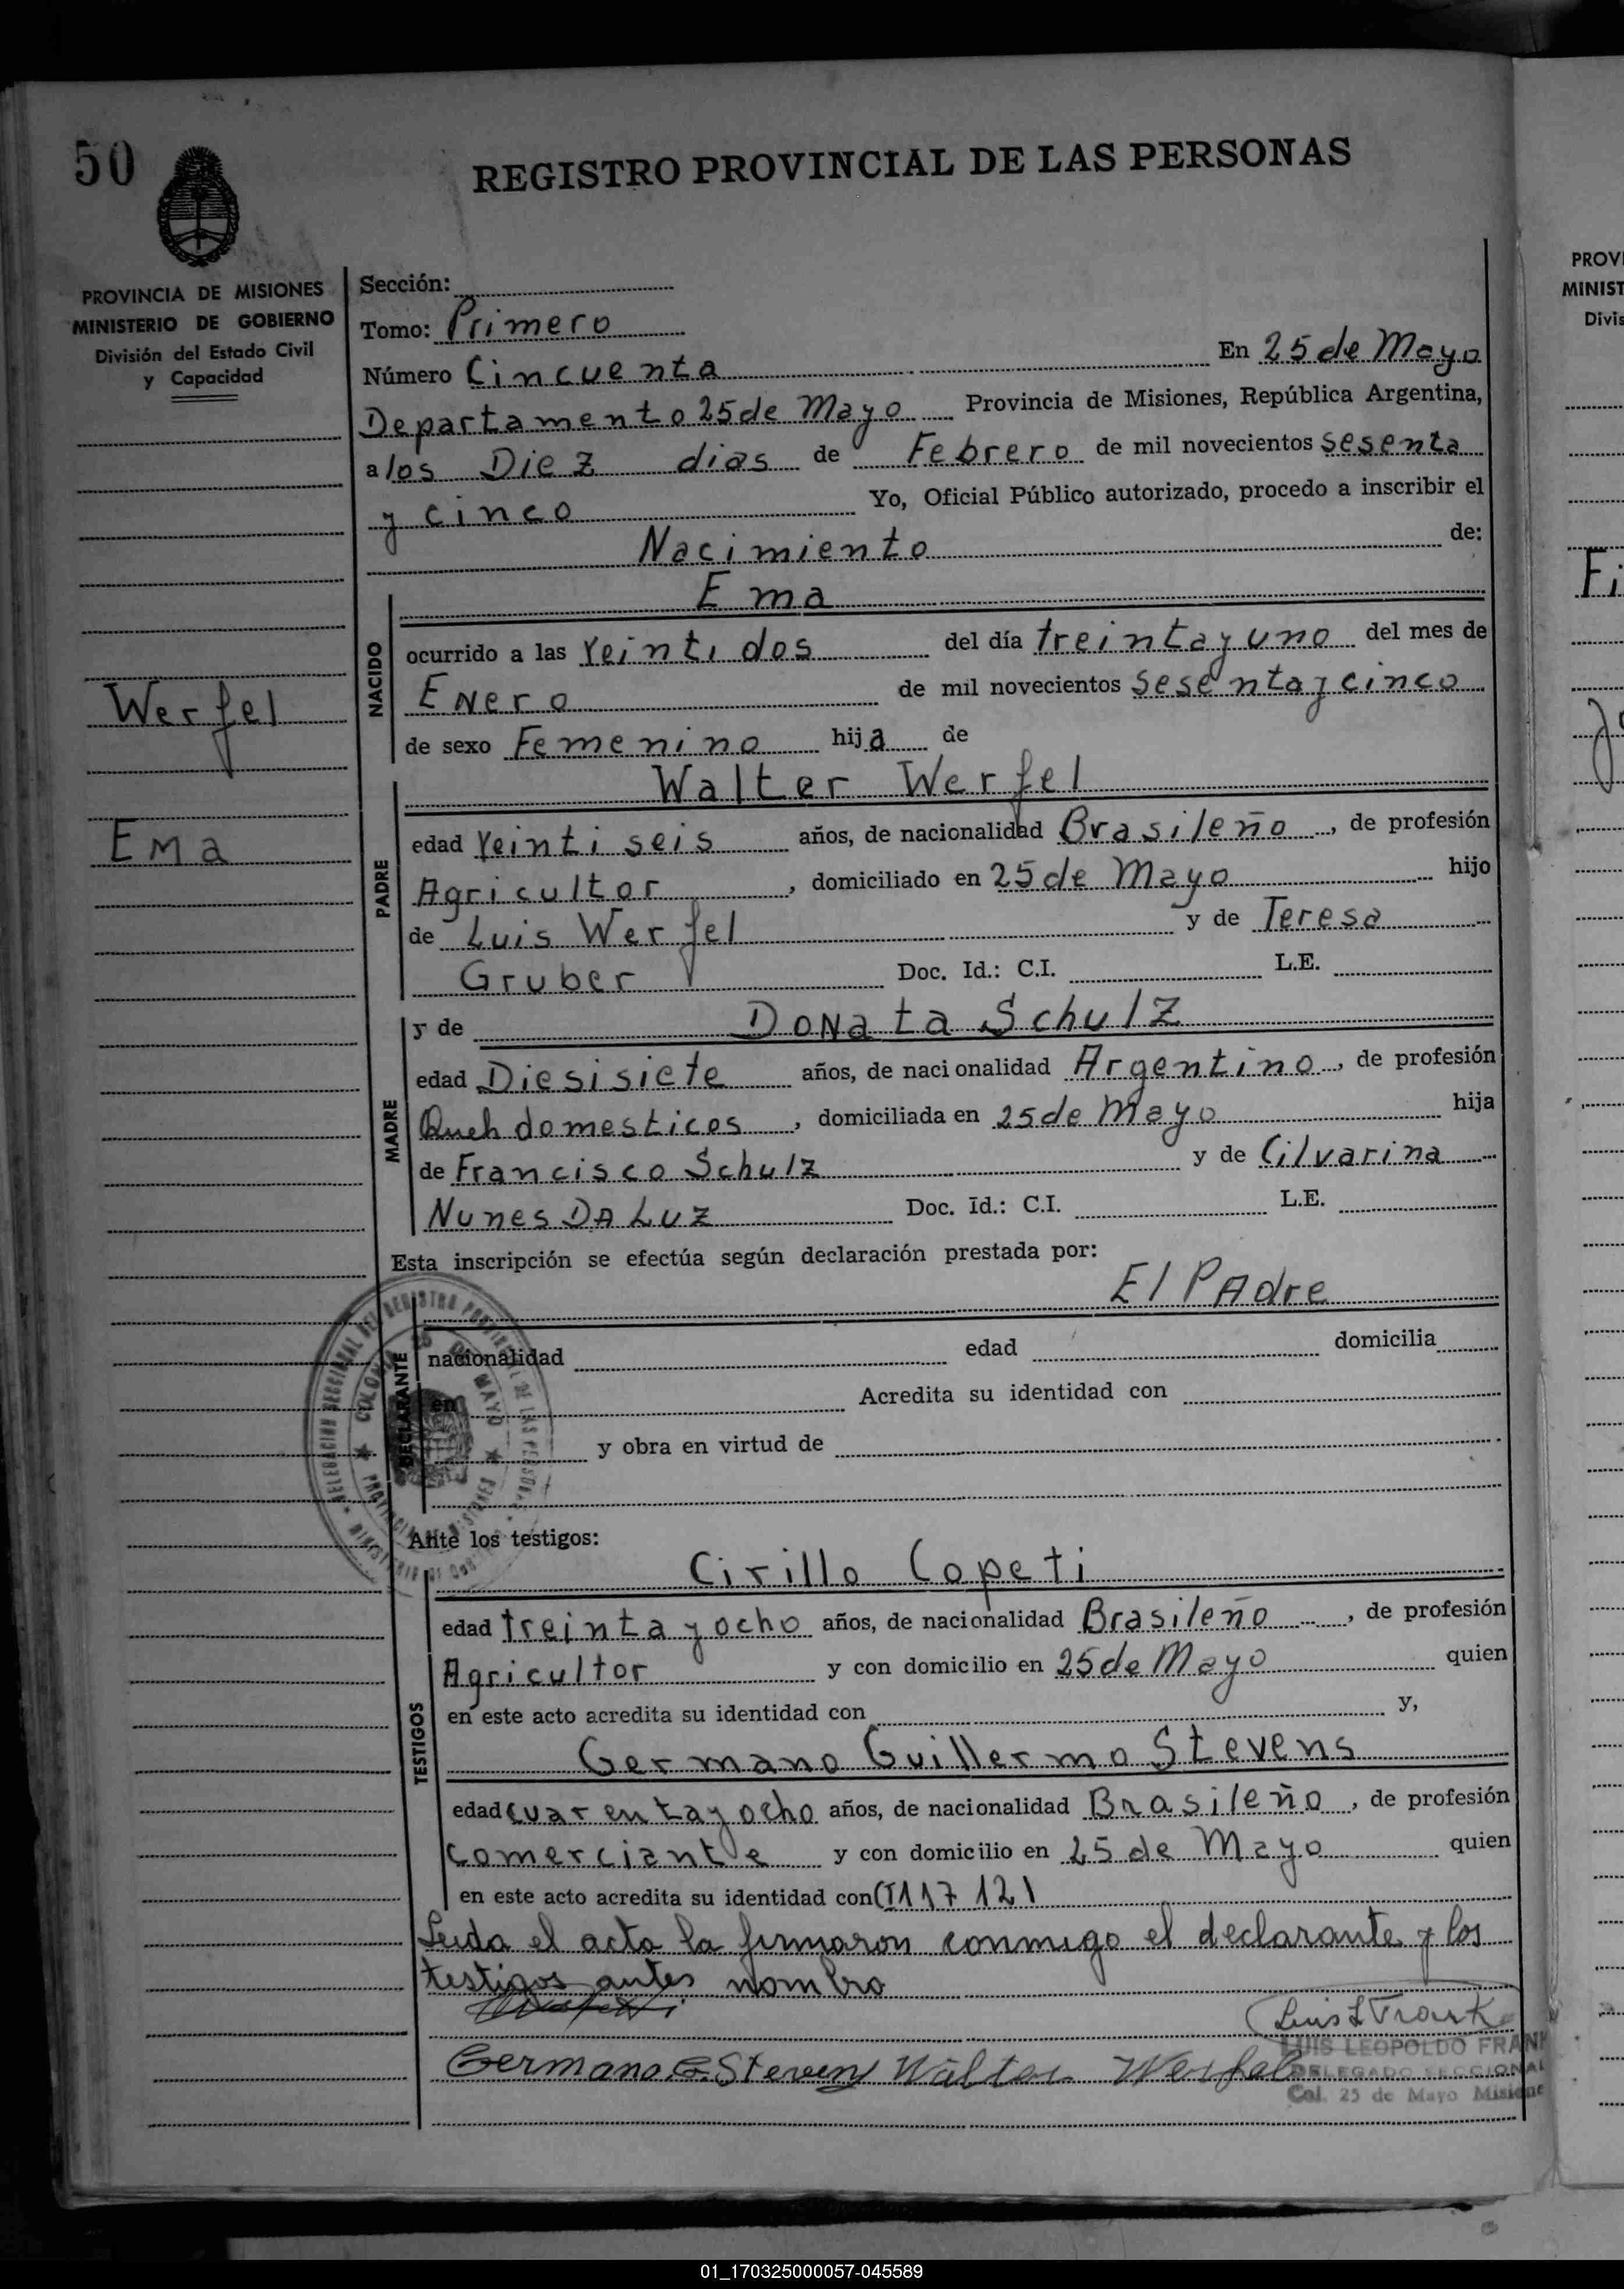 50
REGISTRO PROVINCIAL DE LAS PERSONAS
PROVINCIA DE MISIONES
MINISTERIO DE GOBIERNO
División del Estado Civil
y Capacidad
Werfel
Ema
Sección:
Tomo: Primero
Número Cincuenta En 25 de Mayo
Departamento 25 de Mayo Provincia de Misiones, República Argentina,
a los Diez dias de Febrero de mil novecientos sesenta
y cinco Yo, Oficial Público autorizado, procedo a inscribir el
Nacimiento de:
NACIDO
Ema
ocurrido a las Veinti dos del día treinta y uno del mes de
Enero de mil novecientos sesenta y cinco
de sexo Femenino hija de
PADRE
Walter Werfel
edad Veinti seis años, de nacionalidad Brasileño, de profesión
Agricultor, domiciliado en 25 de Mayo hijo
de Luis Werfel y de Teresa
Gruber Doc. Id.: C.I. L.E.
MADRE
y de Donata Schulz
edad Diesisiete años, de nacionalidad Argentino, de profesión
Queh domesticos, domiciliada en 25 de Mayo hija
de Francisco Schulz y de Cilvarina
Nunes DA Luz Doc. Id.: C.I. L.E.
Esta inscripción se efectúa según declaración prestada por:
El PAdre
DECLARANTE
nacionalidad edad domicilia
en Acredita su identidad con
y obra en virtud de
Ante los testigos:
TESTIGOS
Cirillo Copeti
edad treinta y ocho años, de nacionalidad Brasileño, de profesión
Agricultor y con domicilio en 25 de Mayo quien
en este acto acredita su identidad con y,
Germano Guillermo Stevens
edad cuarenta y ocho años, de nacionalidad Brasileño, de profesión
comerciante y con domicilio en 25 de Mayo quien
en este acto acredita su identidad con CI 117 121
Leida el acta la firmaron conmigo el declarante y los
testigos antes nombra
Luis L Frank
LUIS LEOPOLDO FRANK
DELEGADO SECCIONAL
Col. 25 de Mayo Misione
Germano G. Stevens Walter Werfel
PROVI
MINIST
Divis
Fi
01_170325000057-045589